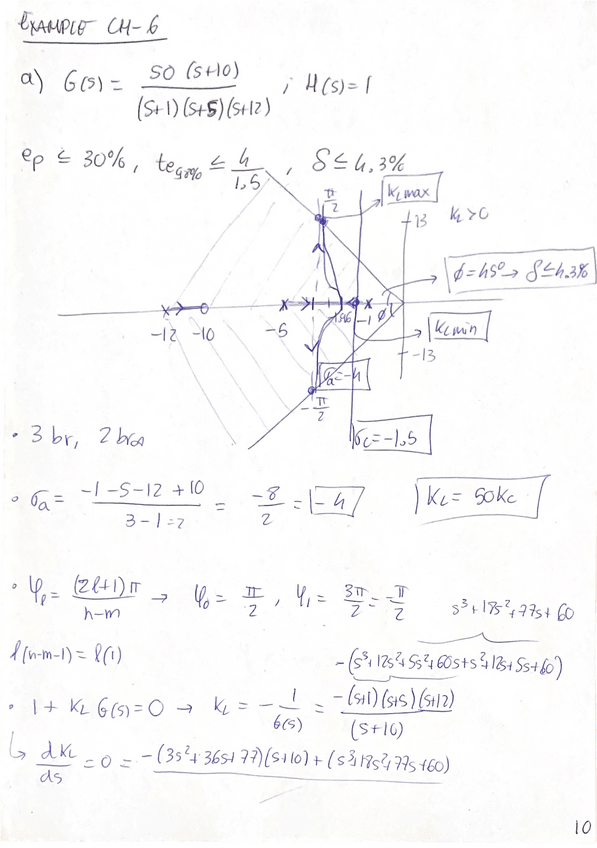 EXAMPLE CH-6
a) G(s) = 50 (s+10) / (s+1)(s+5)(s+12) ; H(s)=1
ep ≤ 30%, te95% ≤ 4/1,5 , δ ≤ 4,3%
π/2
KLmax
+13
KL>0
ϕ=45° → δ≤4.3%
-12
-10
-5
-1
ϕ
KLmin
σa=-4
-13
-π/2
σc=-1,5
• 3 br, 2 br∞
• σa = -1-5-12+10 / 3-1=2 = -8/2 = -4
KL = 50Kc
• φp = (2l+1)π / n-m → φ0 = π/2 , φ1 = 3π/2 = -π/2
s³+18s²+77s+60
l(n-m-1) = l(1)
-(s³+12s²+5s²+60s+s²+12s+5s+60)
• 1 + KL G(s) = 0 → KL = - 1/G(s) = -(s+1)(s+5)(s+12) / (s+10)
↳ dKL/ds = 0 = -(3s²+36s+77)(s+10) + (s³+18s²+77s+60)
10